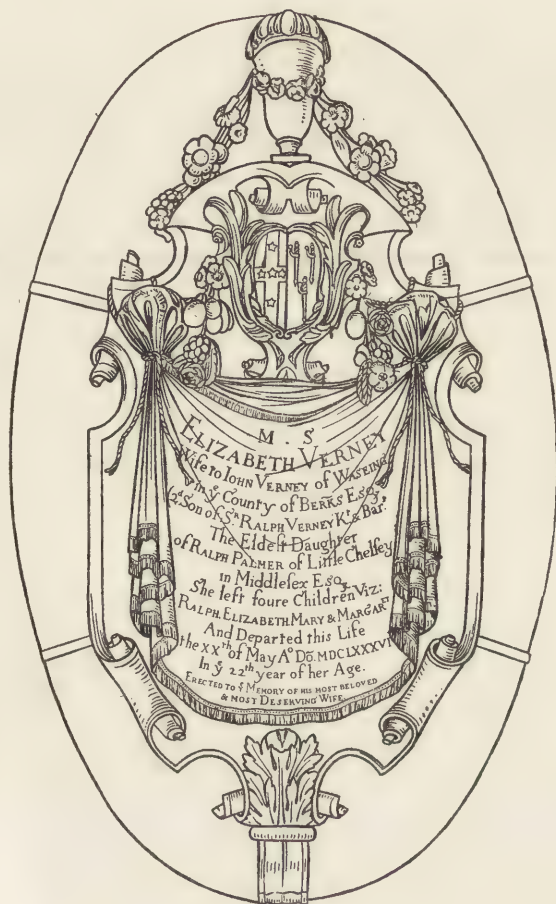 M. S
ELIZABETH VERNEY
Wife to IOHN VERNEY of WASEING
in yͤ County of BERKS Esqʳ,
2ᵈ Son of Sʳ RALPH VERNEY Kᵗ & Barᵗ
The Eldeſt Daughter
of RALPH PALMER of Little Chelſey
in Middleſex Esqʳ
She left foure Children Viz:
RALPH. ELIZABETH. MARY & MARGARᵗ
And Departed this Life
the XXᵗʰ of May Aº Dō. MDCLXXXVI
In yͤ 22ᵗʰ year of her Age.
ERECTED TO yͤ MEMORY OF HIS MOST BELOVED
& MOST DESERVING WIFE